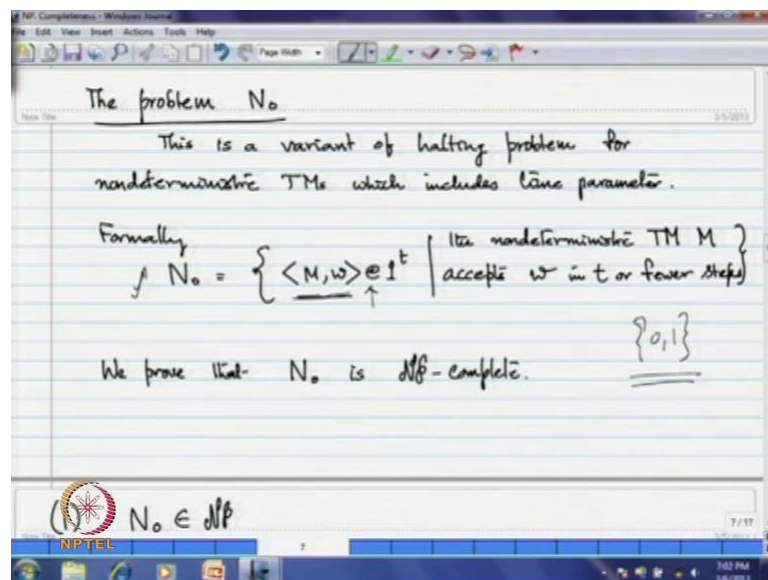 NP. Completeness - Windows Journal
File Edit View Insert Actions Tools Help
Page Width
The problem N₀
Note Title
3/5/2013
This is a variant of halting problem for
nondeterministic TMs which includes time parameter.
Formally
N₀ = { <M,w> @ 1^t | the nondeterministic TM M accepts w in t or fewer steps }
{0,1}
We prove that N₀ is NP-complete.
(1) N₀ ∈ NP
NPTEL
7/17
7
7:02 PM
3/6/2013